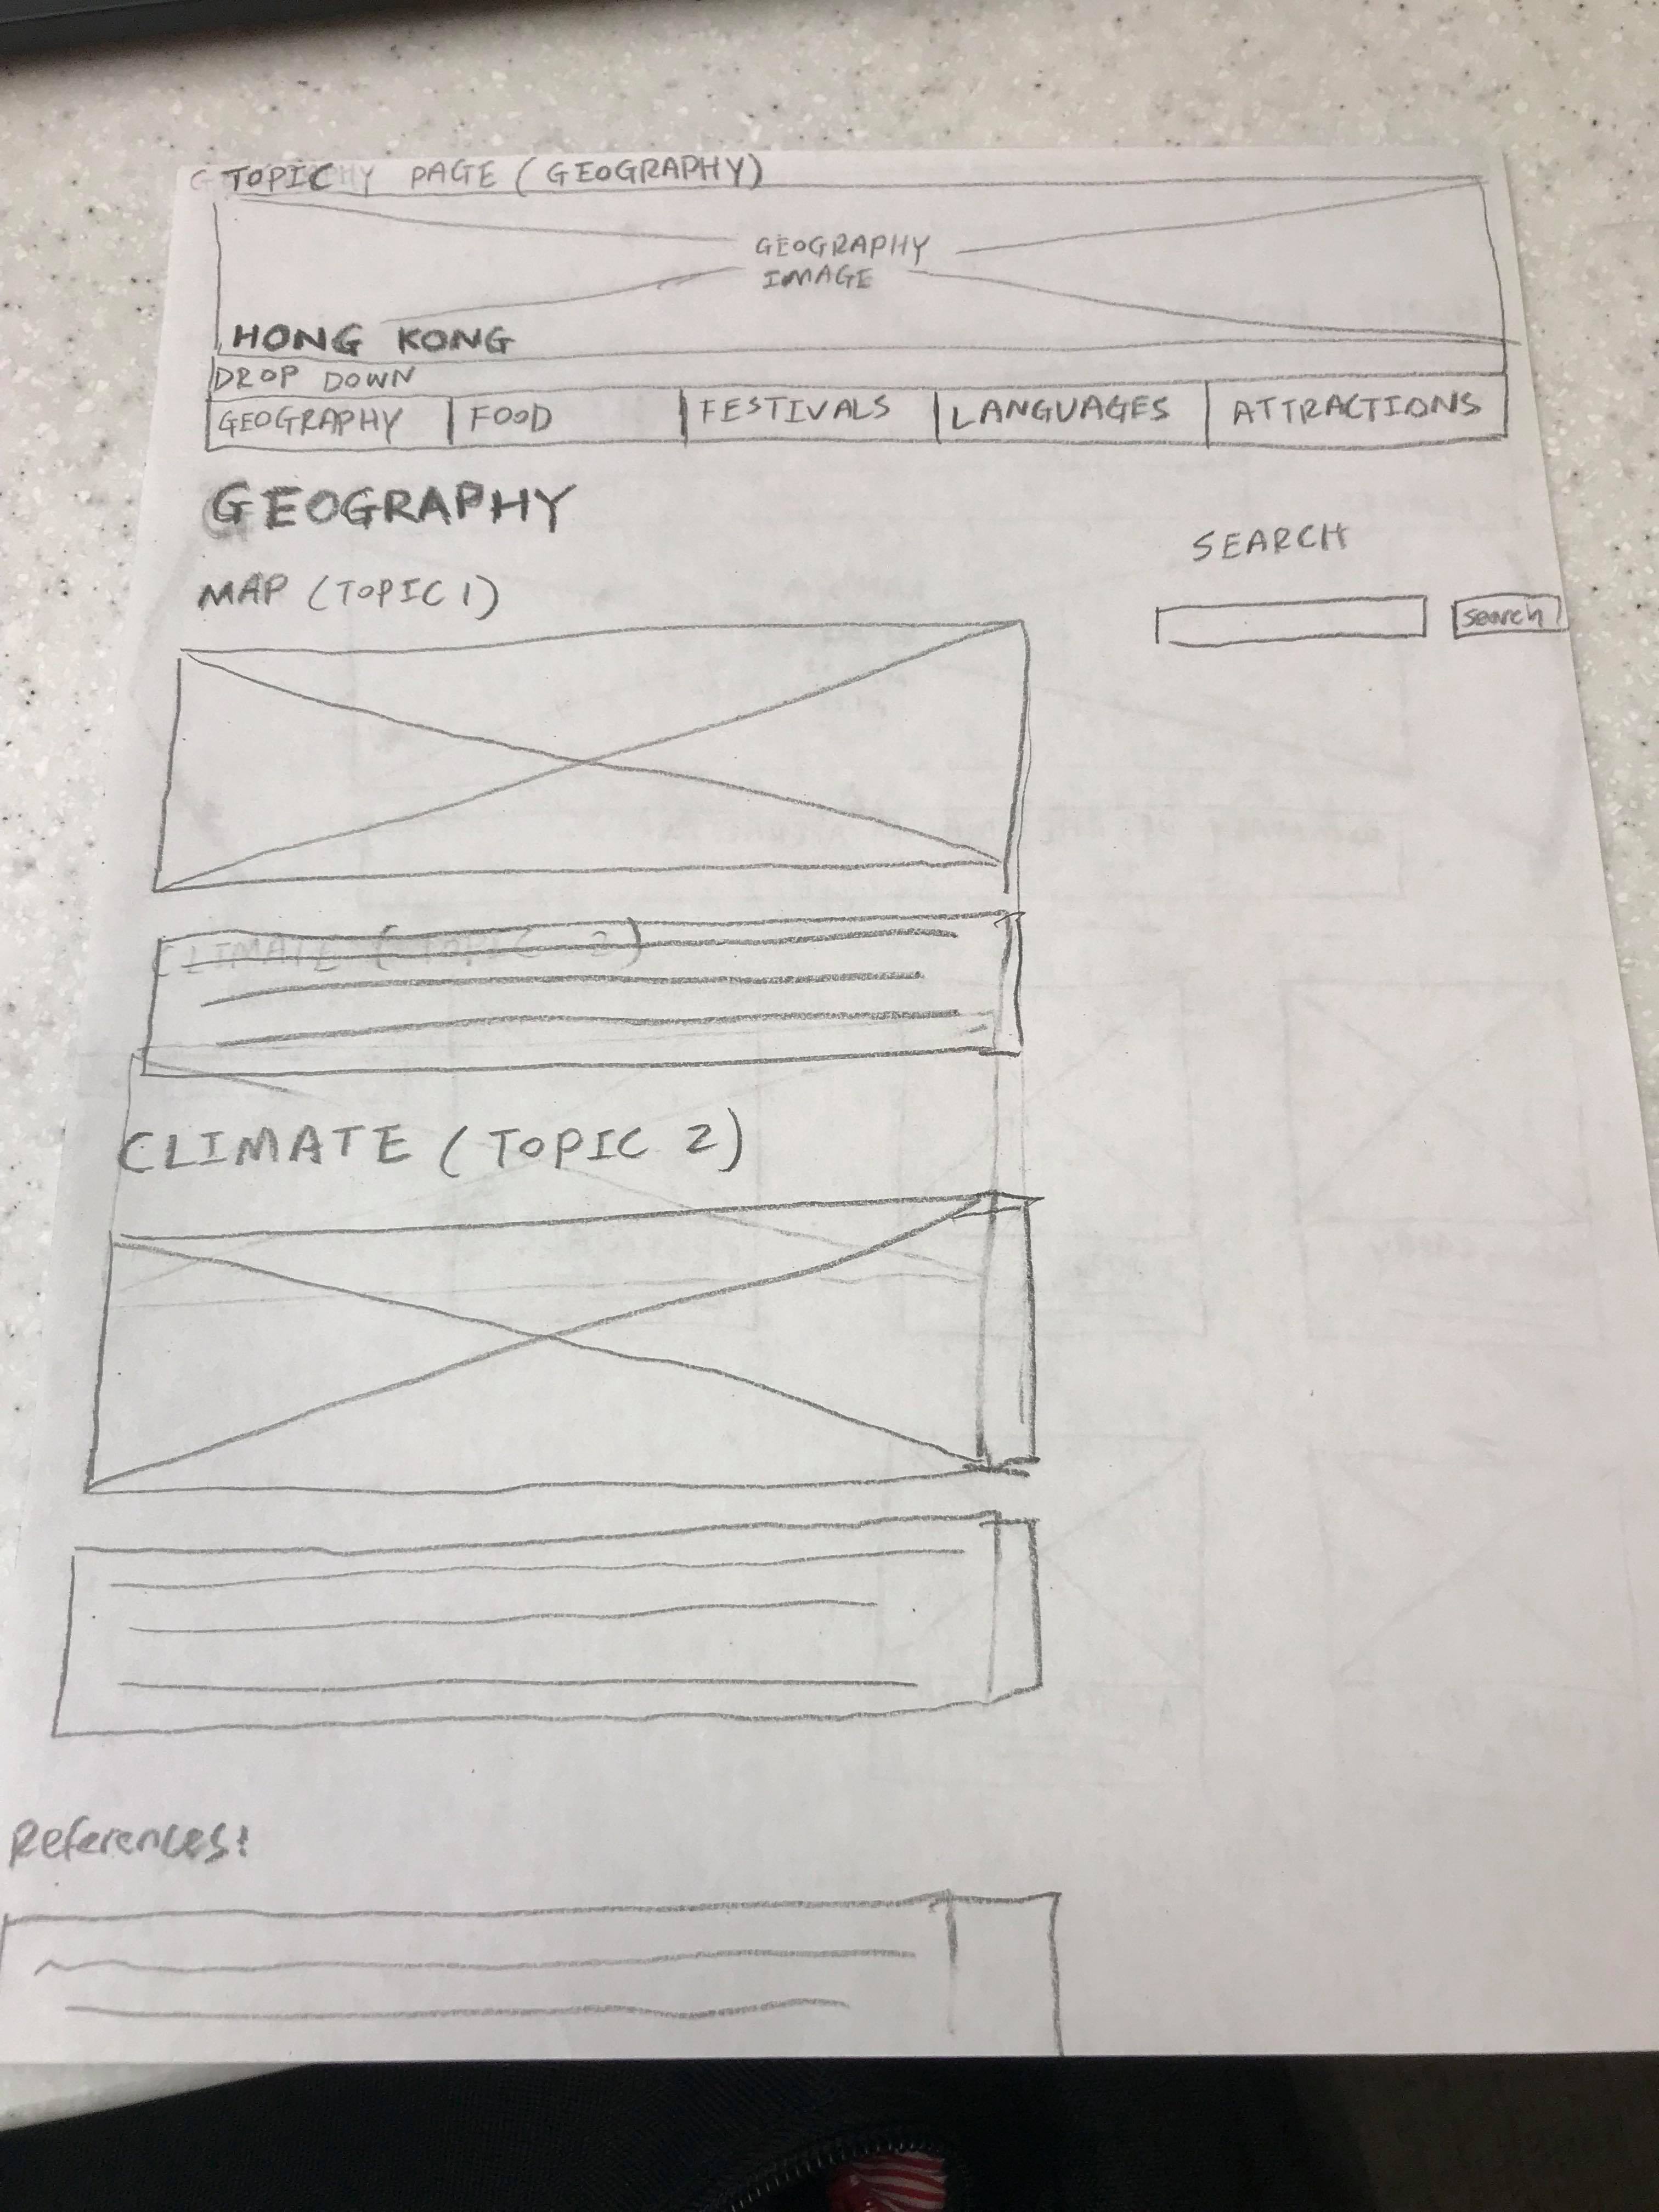 TOPIC PAGE (GEOGRAPHY)
GEOGRAPHY
IMAGE
HONG KONG
DROP DOWN
GEOGRAPHY FOOD FESTIVALS LANGUAGES ATTRACTIONS
GEOGRAPHY
SEARCH
MAP (TOPIC 1)
search
CLIMATE (TOPIC 2)
CLIMATE (TOPIC 2)
References: